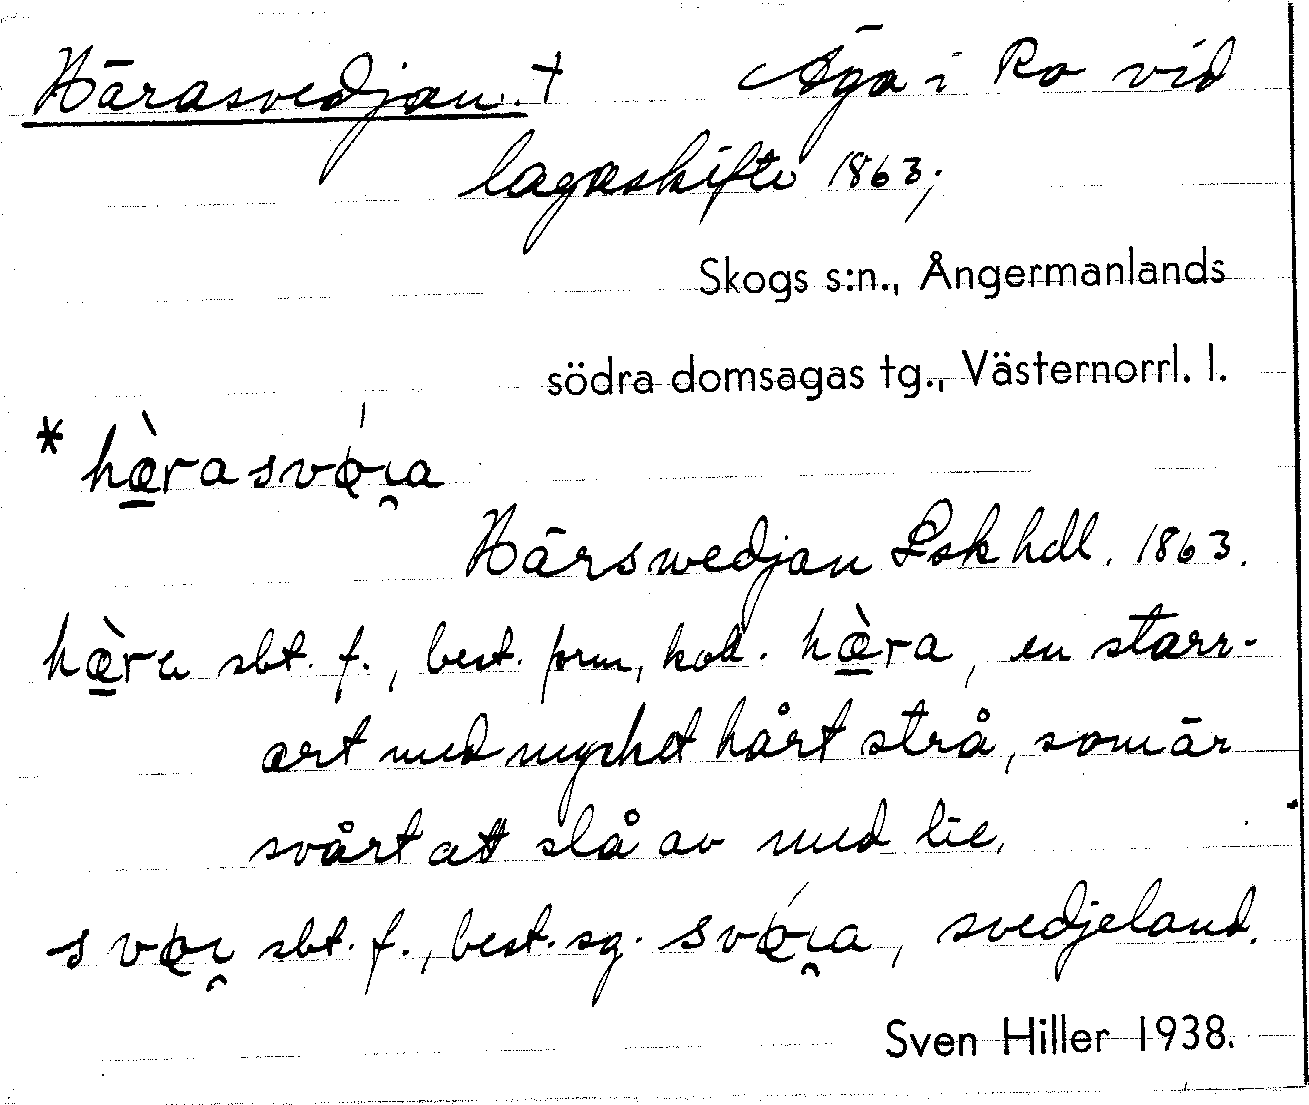 Härasvedjan. † Äga i Ro vid
lagaskifte 1863;
Skogs s:n., Ångermanlands
södra domsagas tg., Västernorrl. l.
* hæ̀rasvǿi̯a
Härswedjan Lsk hdl. 1863.
hæ̀ra sbt. f., best. form, koll. hæ̀ra, en starr-
art med mycket hårt strå, som är
svårt att slå av med lie.
svøi̯ sbt. f., best. sg. svǿi̯a, svedjeland.
Sven Hiller 1938.